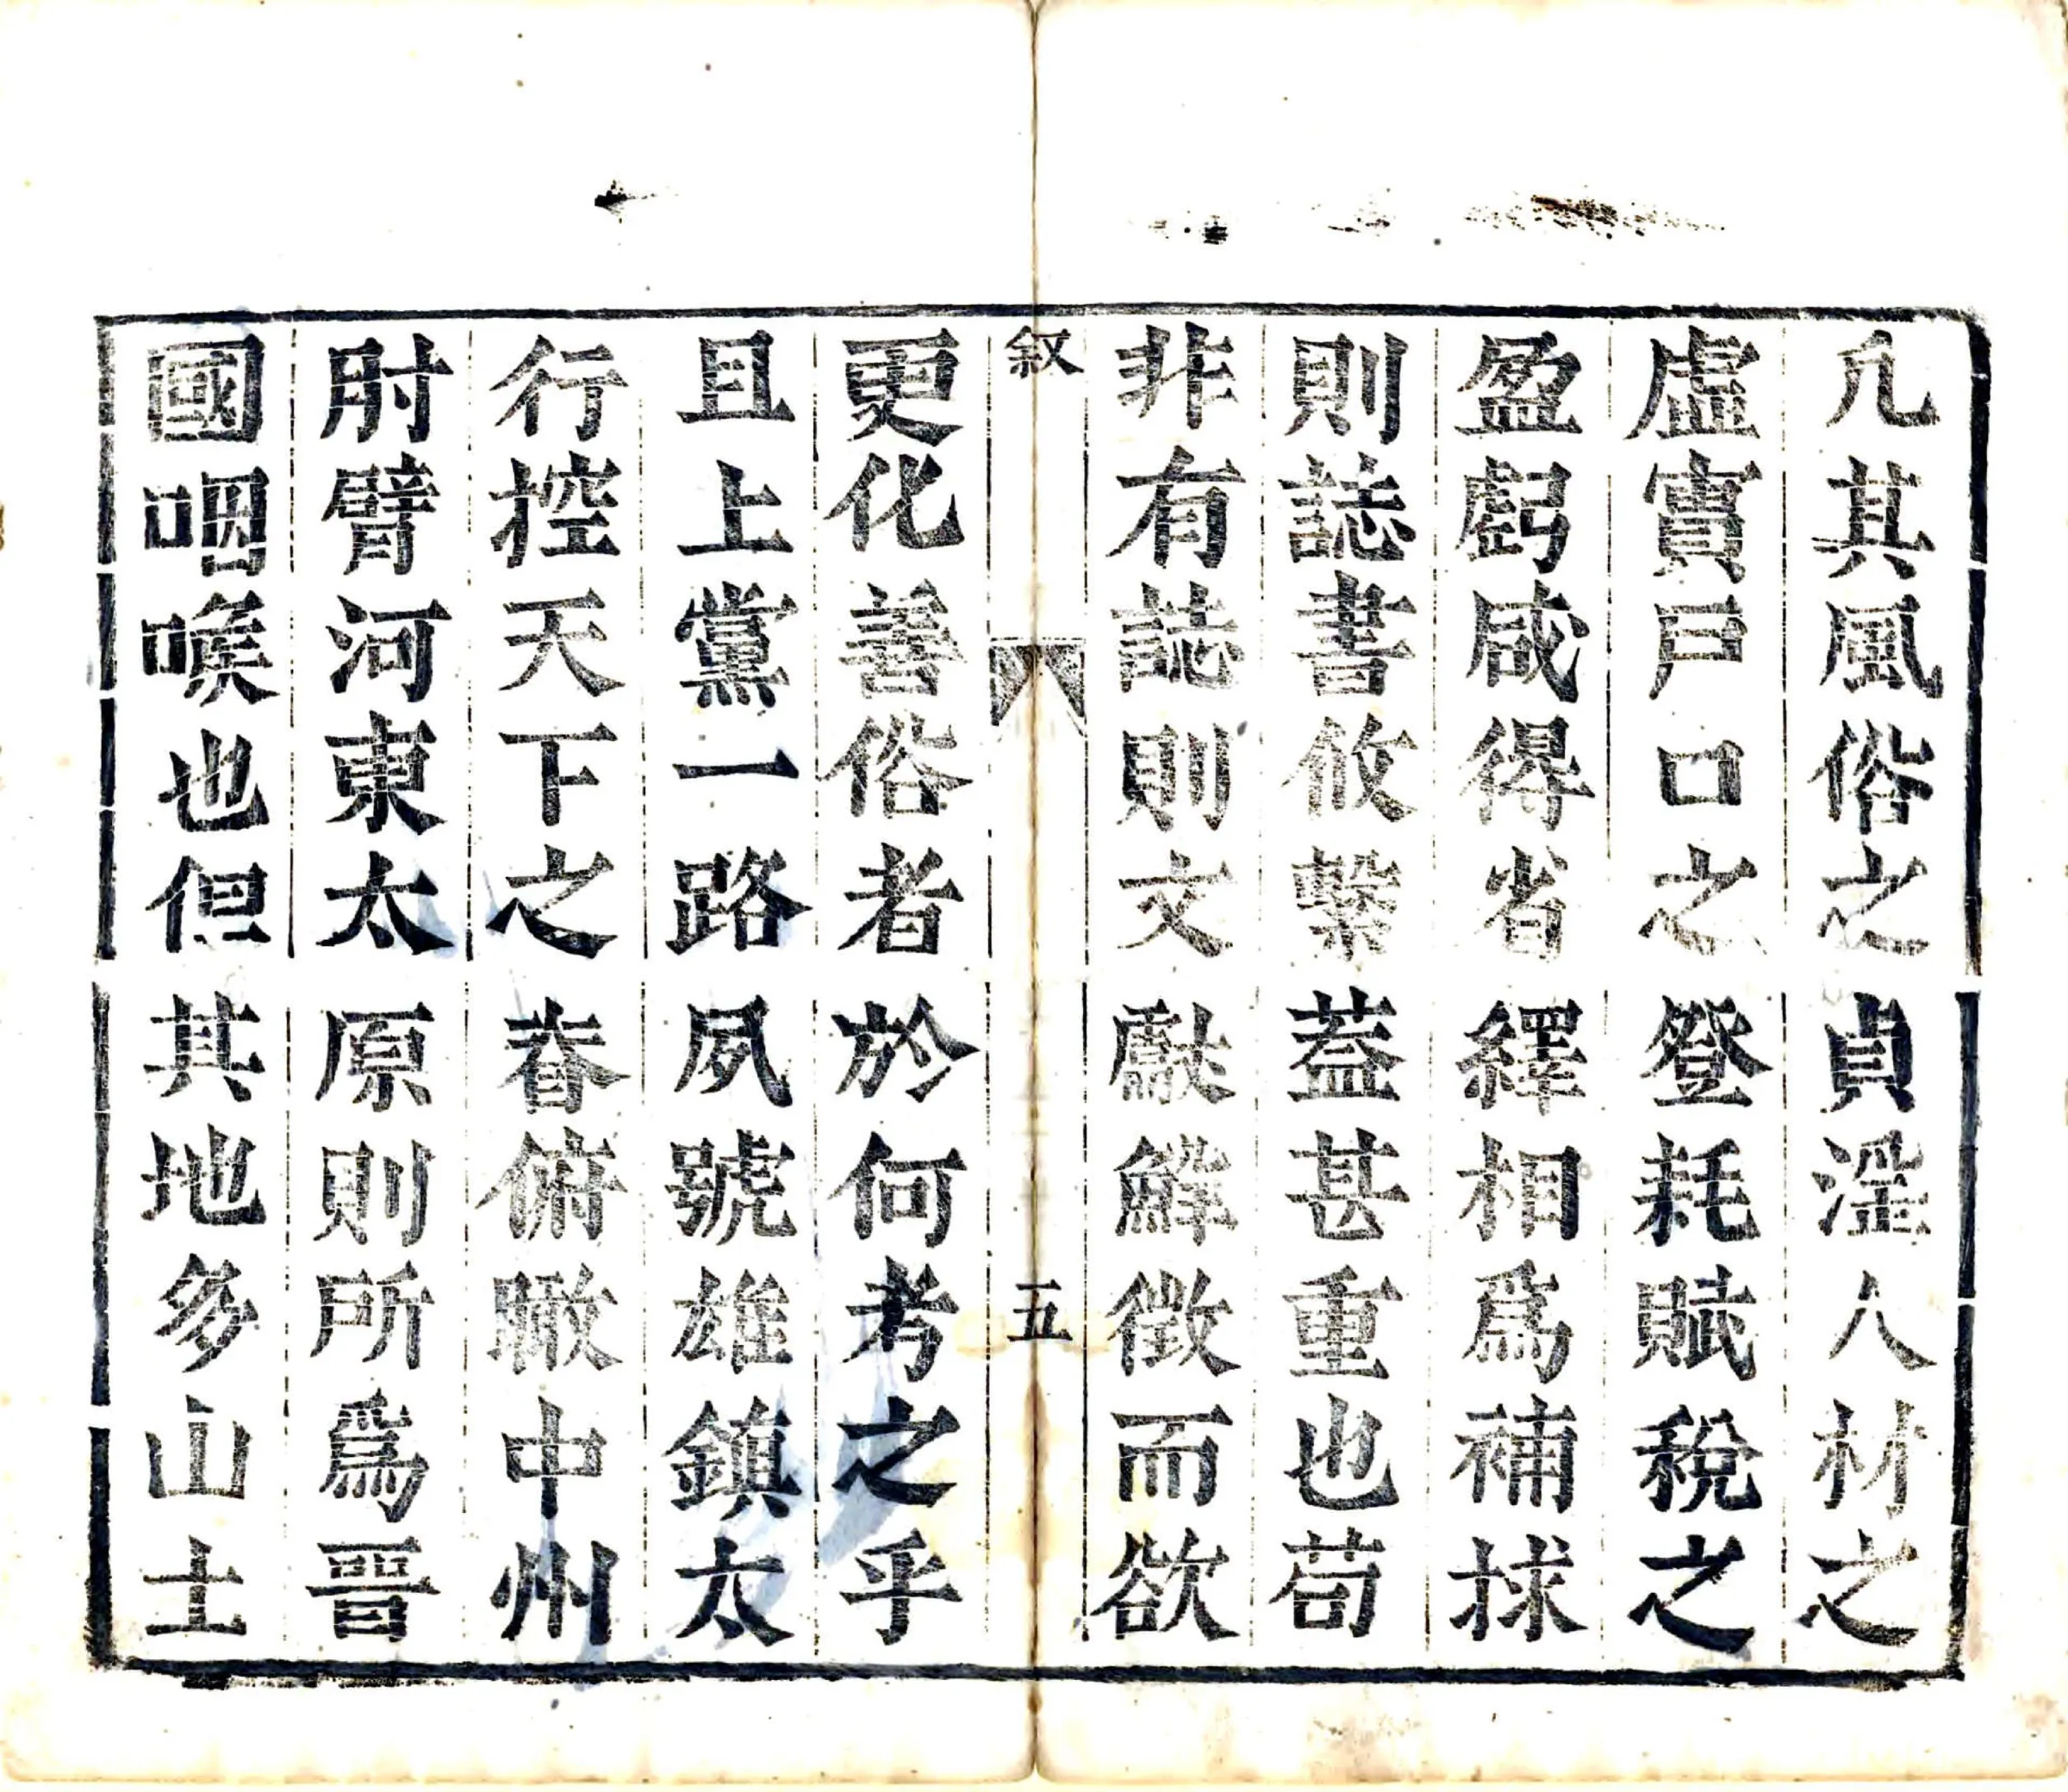 凢其風俗之貞滛人材之
虛實戶口之登耗賦稅之
盈虧咸得省繹相爲補捄
則誌書攸繫葢甚重也苟
非有誌則文獻觧徵而欲
叙
五
更化善俗者於何考之乎
且上黨一路夙號雄鎮太
行控天下之脊俯瞰中州
肘臂河東太原則所爲晉
國咽喉也但其地多山土